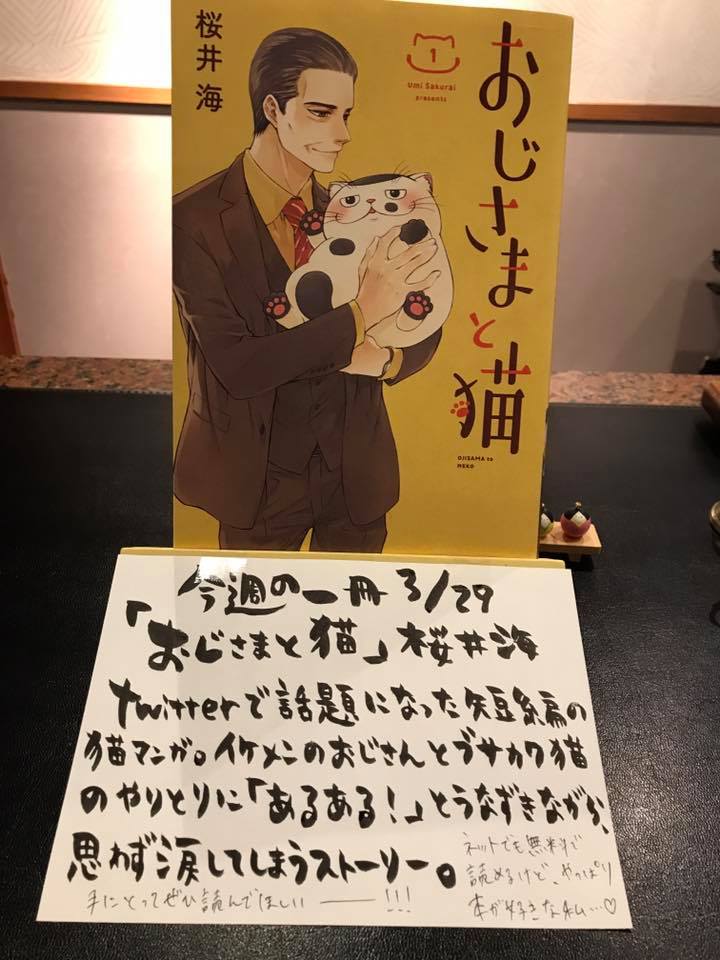 桜井 海
1
Umi Sakurai
presents
おじさまと猫
OJISAMA to
NEKO
今週の一冊 3/29
「おじさまと猫」桜井海
twitterで話題になった短編の
猫マンガ。イケメンのおじさんとブサカワ猫
のやりとりに「あるある!」とうなずきながら、
思わず涙してしまうストーリー。
手にとってぜひ読んでほしい ー!!!
ネットでも無料で
読めるけど、やっぱり
本が好きな私…♡